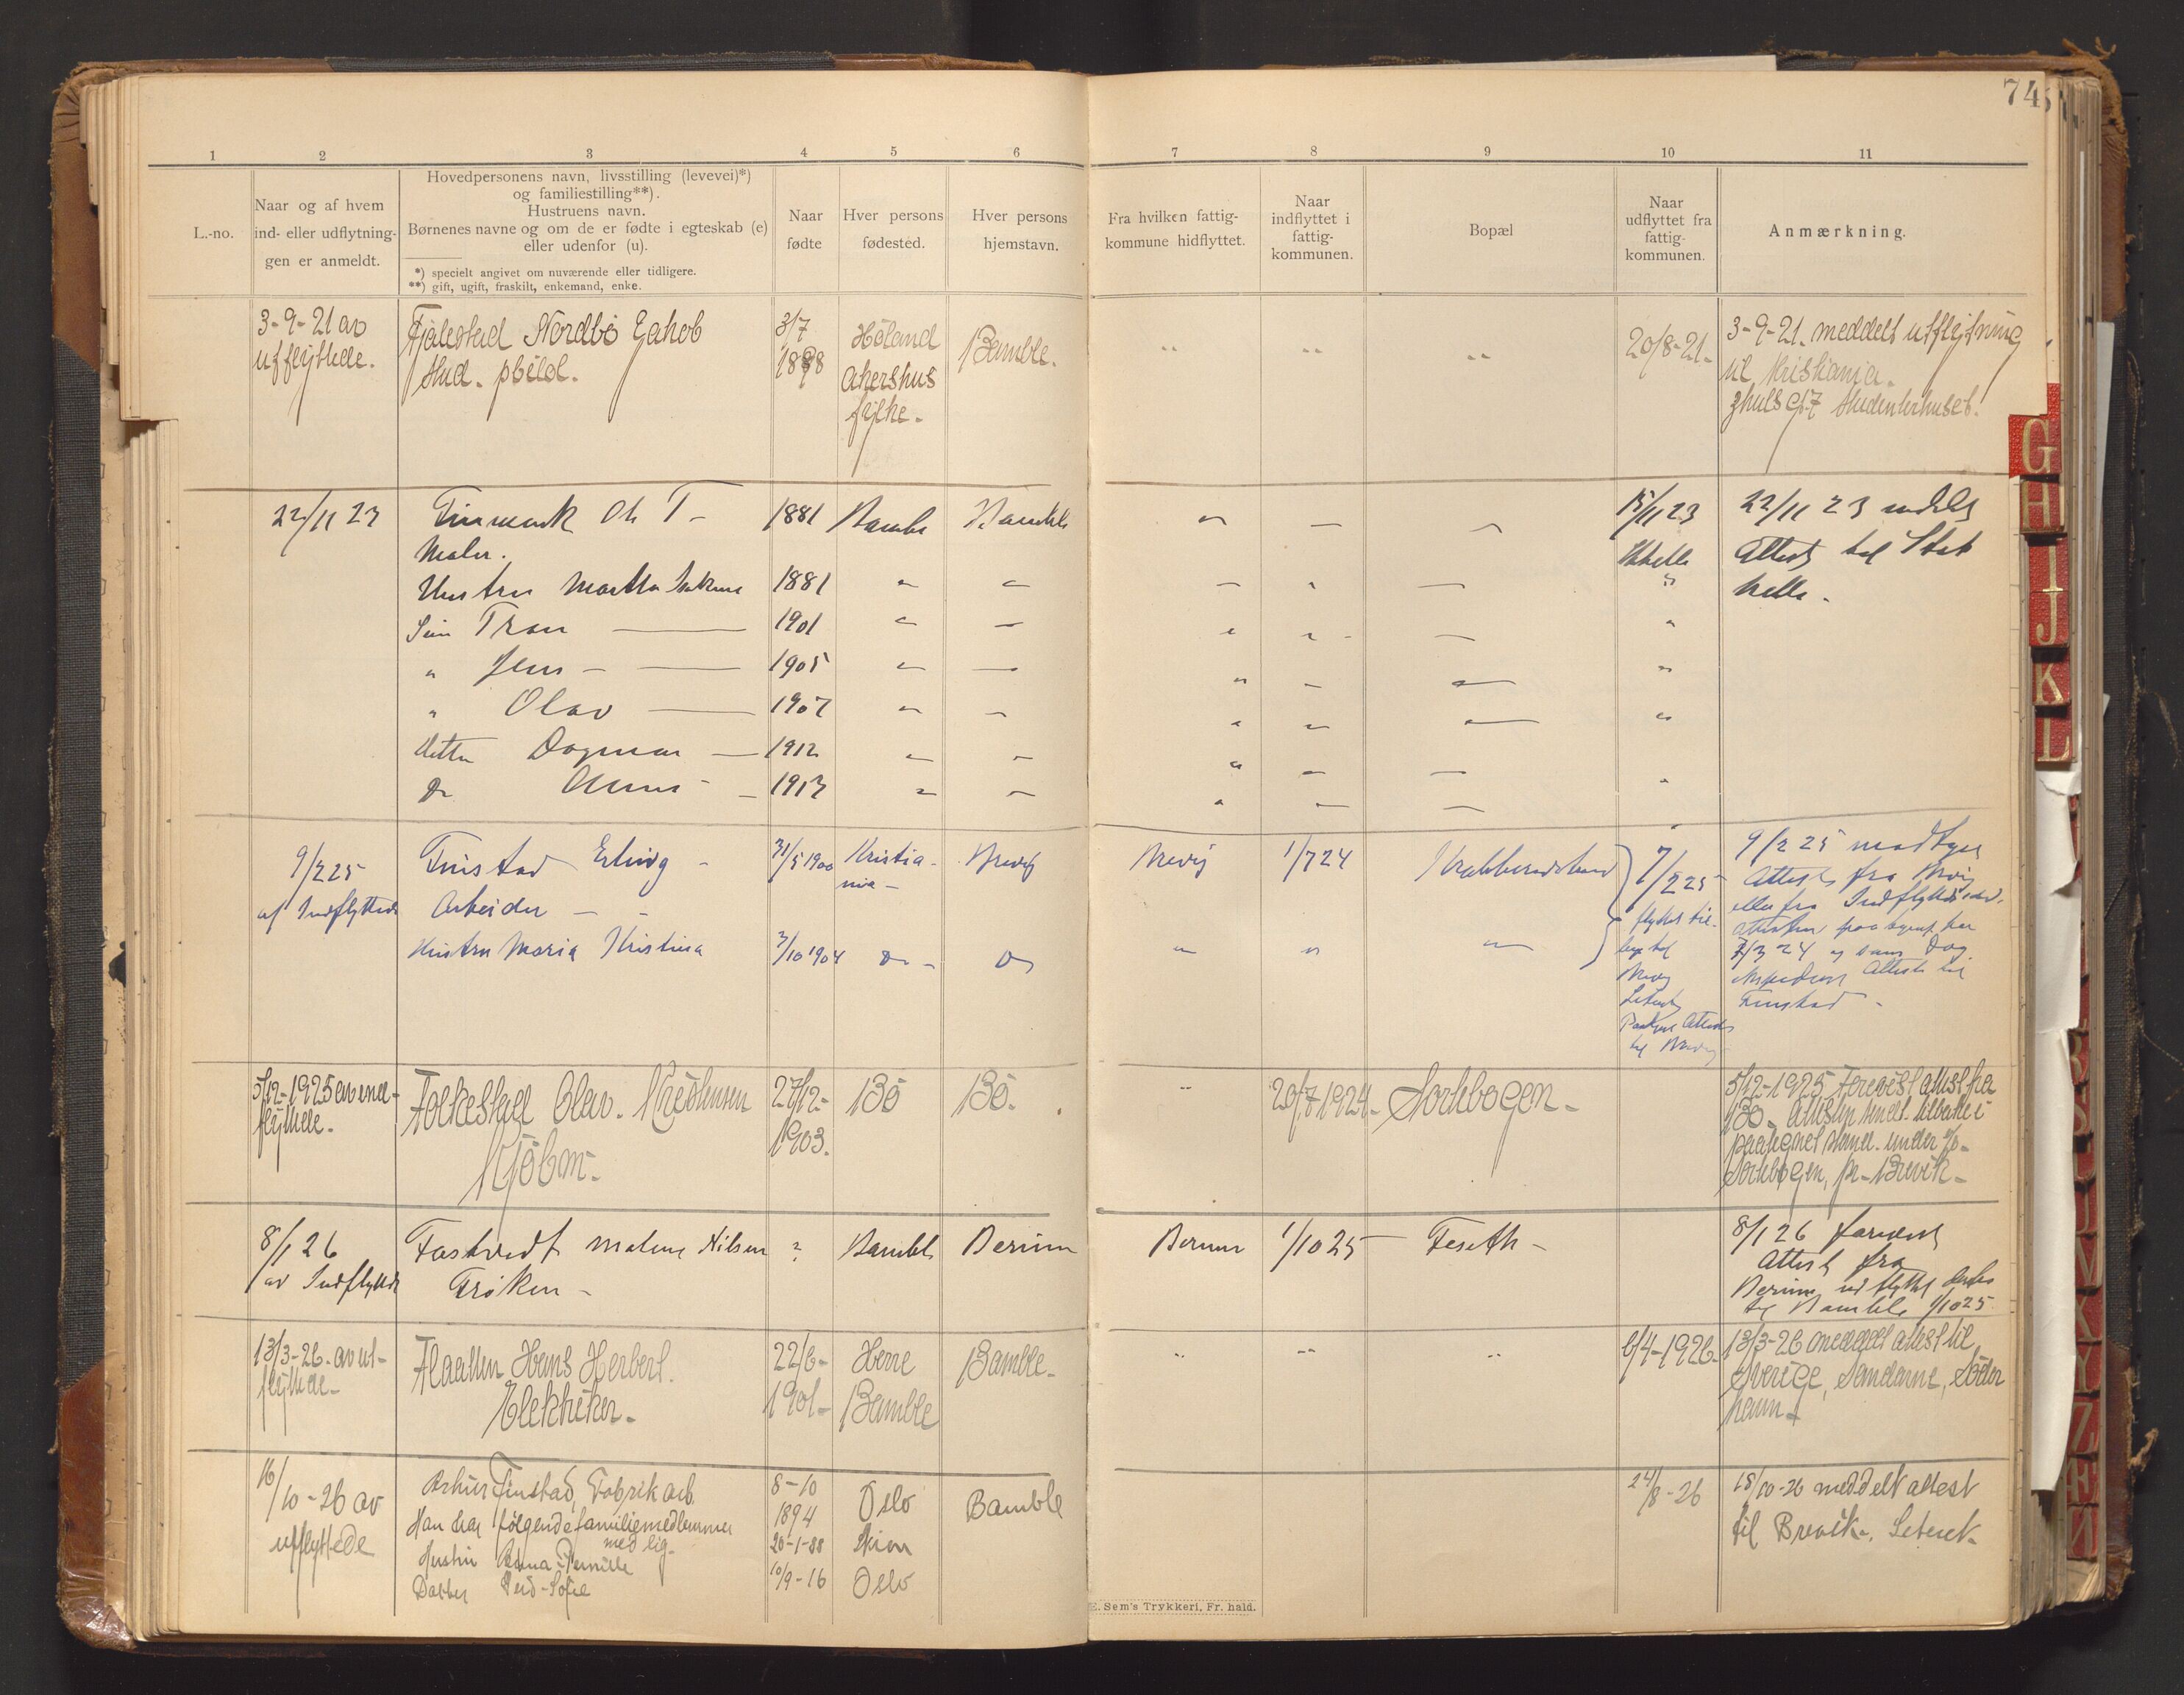 74
1 2 3 4 5 6 7 8 9 10 11
L.-no.
Naar og af hvem
ind- eller udflytning-
gen er anmeldt.
Hovedpersonens navn, livsstilling (levevei)*)
og familiestilling**).
Hustruens navn.
Børnenes navne og om de er fødte i egteskab (e)
eller udenfor (u).
*) specielt angivet om nuværende eller tidligere.
**) gift, ugift, fraskilt, enkemand, enke.
Naar
fødte
Hver persons
fødested.
Hver persons
hjemstavn.
Fra hvilken fattig-
kommune hidflyttet.
Naar
indflyttet i
fattig-
kommunen.
Bopæl
Naar
udflyttet fra
fattig-
kommunen.
Anmærkning.
3-9-21 av
utflyttede.
Fjälestad Nordbö Jakob
Stud. philol.
3/7
1898
Höland
Akershus
fylke.
Bamble.
20/8-21.
3-9-21. meddelt utflytning
til Kristiania.
Studenterhuset.
22/11 23
Finmark Ole T -
Maler.
1881
Bamble
Bamble
15/11 23
Stathelle
22/11 23 meddelt
Attest til Stat
helle.
Hustru Martha 1881
Søn Tran 1901
" Jens - 1905
" Olav 1907
Datter Dagmar 1912
Do 1913
9/2 25
af Indflyttede
Finstad Erling -
Arbeider
31/5 1900
Kristia-
nia -
Brevig
Brevig
1/7 24
7/2 25
flyttet til-
bage til
Brevig
9/2 25 modtaget
Attest fra Brevig
Attest til
Finstad -
Hustru Maria Kristina
3/10 1904
Do -
Do
5/12-1925 av ind-
flyttede.
Folkestad Olav. Kristensen
Kjöbm.
27/12-
1903.
Bö
Bö.
20/7-1924-
Sortebogen-
5/12-1925 forevist attest fra
Bö. Attesten sendt tilbake i
paategnet stand. under
Sortebogen, pr. Brevik-
8/1 26
av Indflyttede
Fostvedt Malene Nilsen
Frøken -
?
Bamble
Berum
Berum
1/10 25
Feseth -
8/1 26 forevist
Attest fra
Berum udflyttet derfra
til Bamble 1/10 25.
13/3-26. av ut-
flyttede-
Flaatten Hans Herbert.
Elektriker-
22/6-
1901-
Herre
Bamble
Bamble.
6/4-1926-
13/3-26 meddelt attest til
Sverige, Sandarne, Söder
hamn-
16/10-26 av
utflyttede
Arthur Finstad, Fabrikarb.
Han har følgende familiemedlemmer
med sig-
Hustru Anna Pernille
Datter Gerd-Sofie
8-10
1894
20-1-88
10/9-16
Oslo
Skien
Oslo
Bamble
24/8-26
18/10-26 meddelt attest
til Brevik.
E. Sem's Trykkeri, Fr. hald.
G
H
I
J
K
L